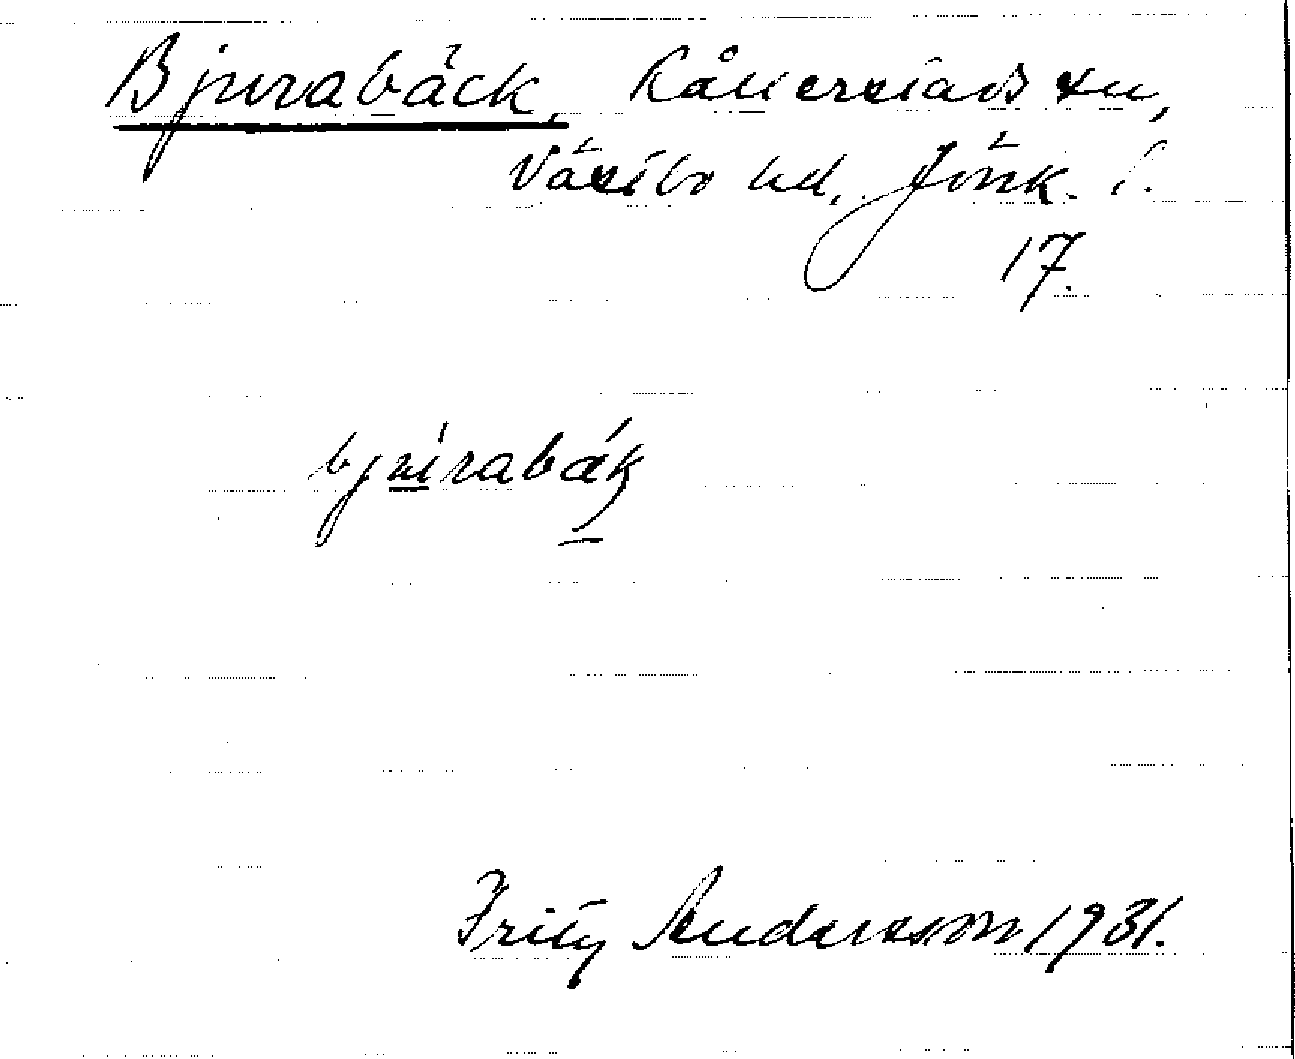 Bjurabäck, Kållerstads sn,
Västbo hd, Jönk. l.
17.
bjúrabák
Fritz Andersson 1931.